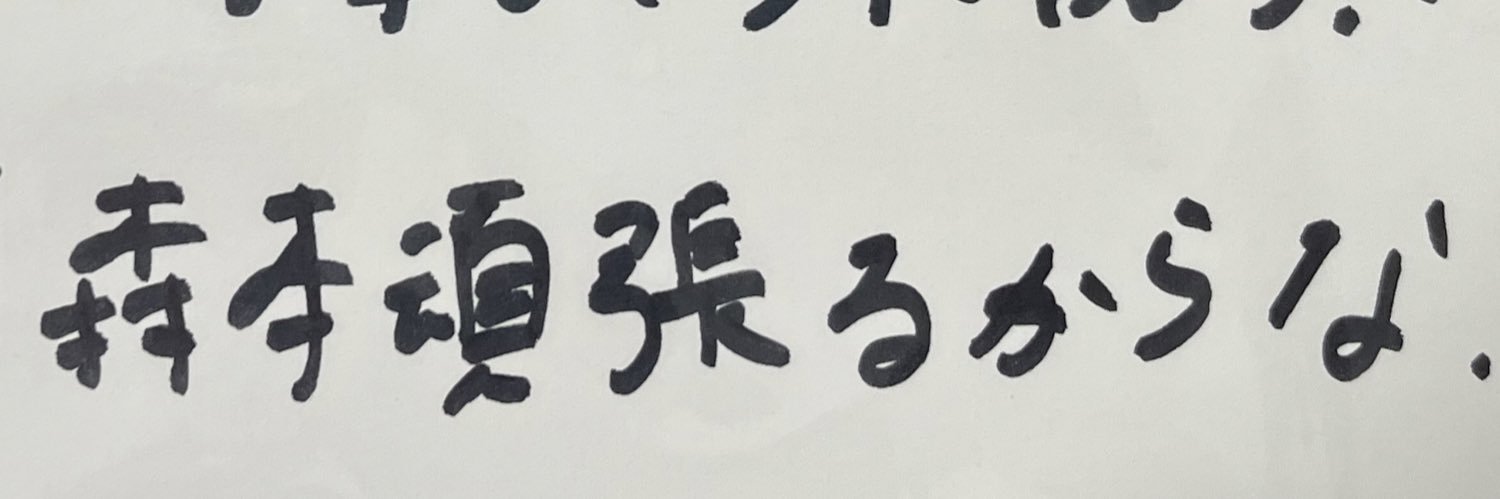 森本頑張るからな.